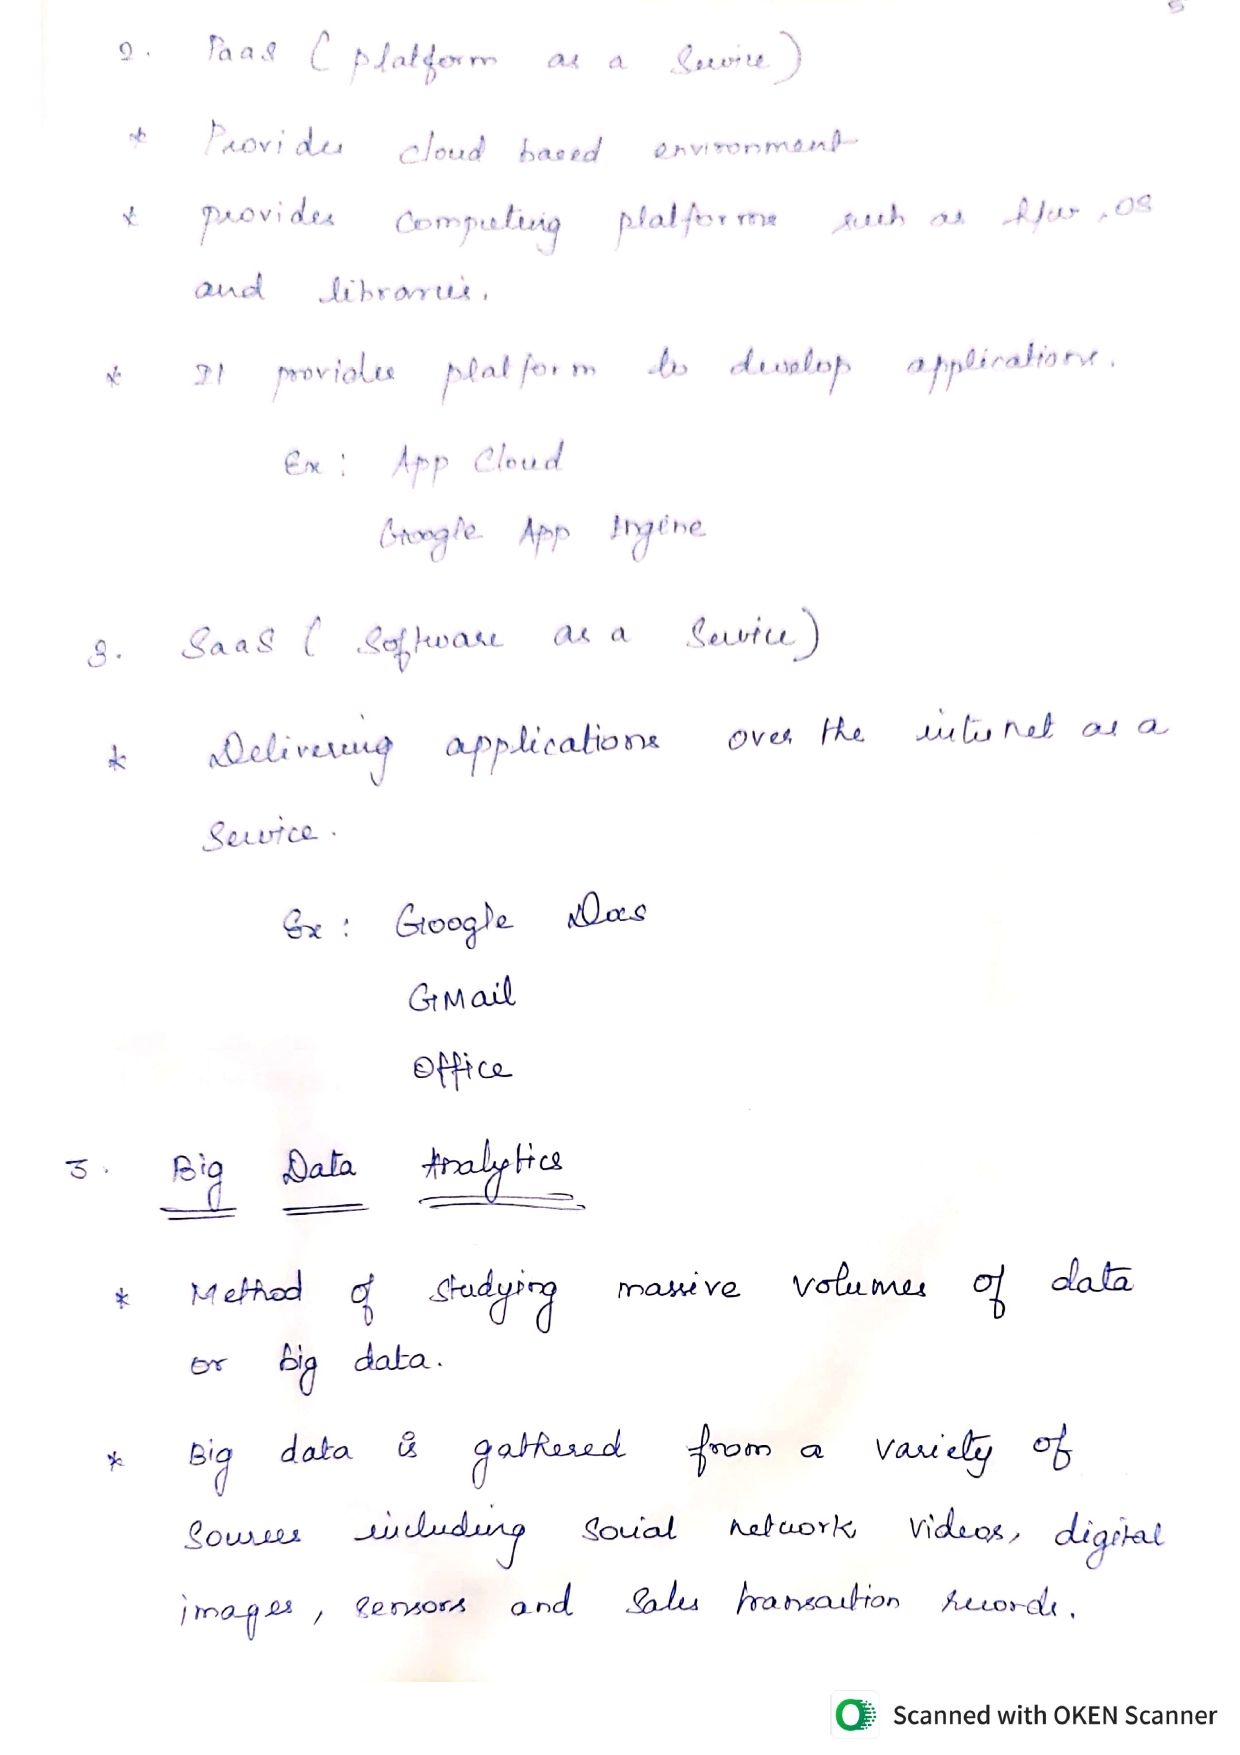 5
2. PaaS (platform as a Service)
* Provides cloud based environment
* provides computing platforms such as h/w, OS
and libraries.
* It provides platform to develop applications.
Ex: App Cloud
Google App Ingine
3. SaaS (Software as a Service)
* Delivering applications over the internet as a
Service.
Ex: Google Docs
GMail
Office
3. Big Data Analytics
* Method of studying massive volumes of data
or big data.
* Big data is gathered from a variety of
Sources including Social network videos, digital
images, sensors and Sales transaction records.
Scanned with OKEN Scanner